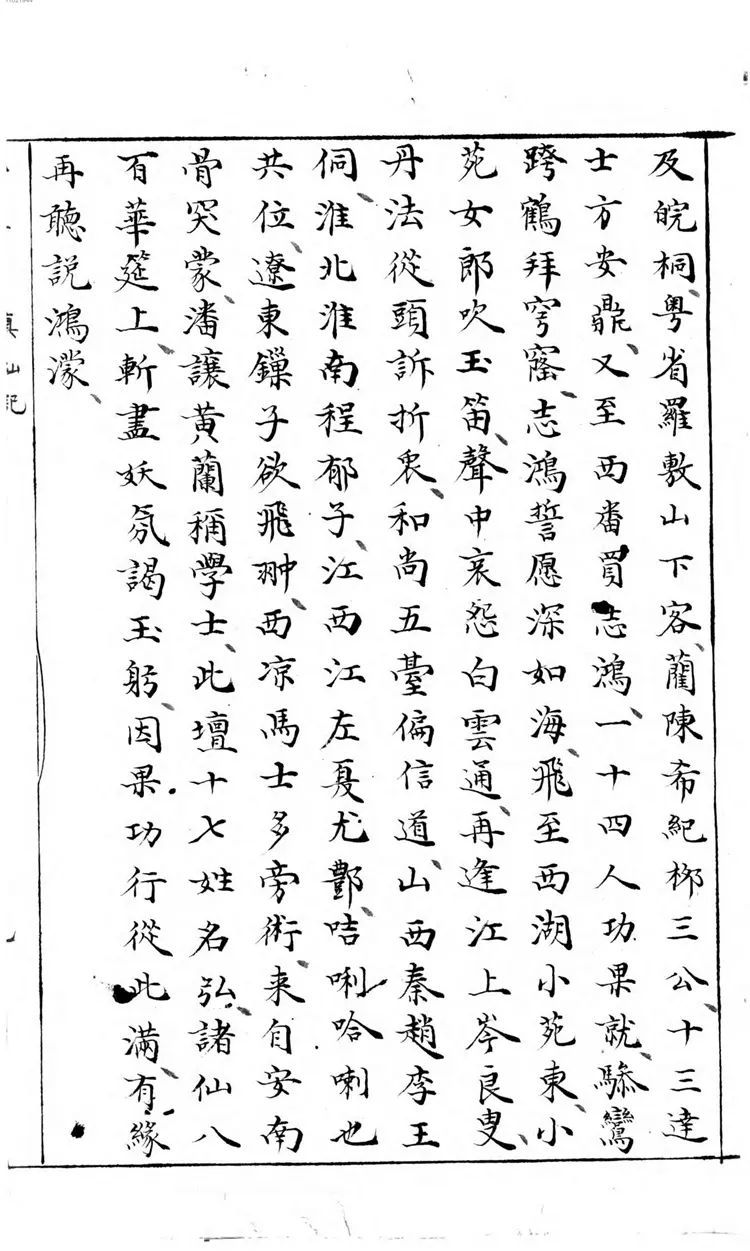 及皖桐粤省羅敷山下客、藺陳希紀柳三公、十三達
士方安鼎、又至西番買志鴻、一十四人功果就、驂鸞
跨鶴拜穹窿、志鴻誓愿深如海、飛至西湖小苑東、小
苑女郎吹玉笛、聲中哀怨白雲通、再逢江上岑良叟、
丹法從頭訴折衷、和尚五臺偏信道、山西秦趙李王
侗、淮北淮南程郁子、江西江左夏尤酆、咭唎哈喇也
共位、遼東鏁子欲飛翀、西凉馬士多旁術、来自安南
骨突蒙、潘讓黄蘭稱學士、此壇十七姓名弘、諸仙八
百華筵上、斬盡妖氛謁玉躬、因果功行從此滿、有緣
再聽説鴻濛、
真仙記